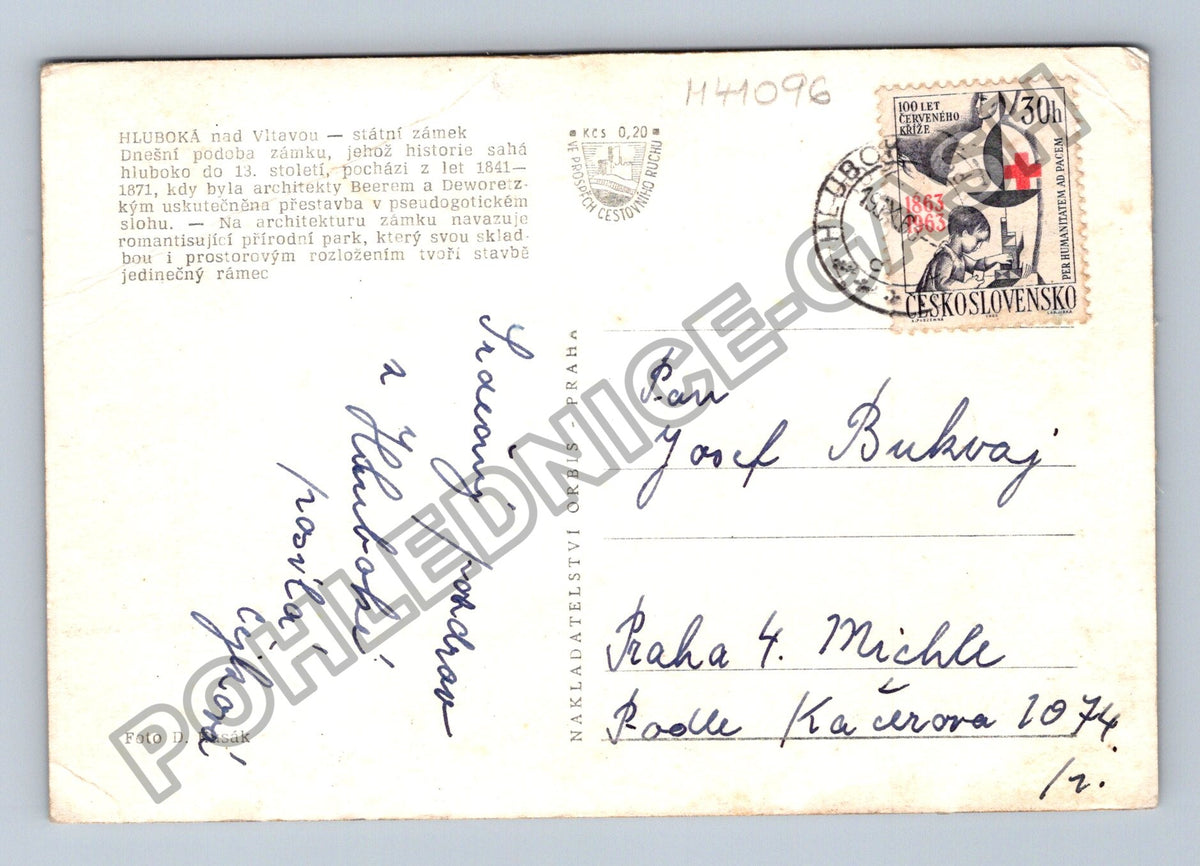 M41096
HLUBOKÁ nad Vltavou — státní zámek
Dnešní podoba zámku, jehož historie sahá
hluboko do 13. století, pochází z let 1841—
—1871, kdy byla architekty Beerem a Deworetz-
kým uskutečněna přestavba v pseudogotickém
slohu. — Na architekturu zámku navazuje
romantisující přírodní park, který svou sklad-
bou i prostorovým rozložením tvoří stavbě
jedinečný rámec
Kčs 0,20
VE PROSPĚCH CESTOVNÍHO RUCHU
100 LET
ČERVENÉHO
KŘÍŽE
30h
1863
1963
PER HUMANITATEM AD PACEM
ČESKOSLOVENSKO
HLUBOK
Srdečný pozdrav
z Hluboké
posílá
NAKLADATELSTVÍ ORBIS - PRAHA
Pan
Josef Bukvaj
Praha 4. Michle
Podle Kačerova 1074.
Foto D.
POHLEDNICE-GASH